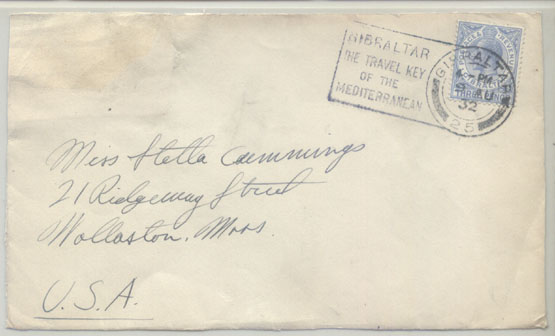 GIBRALTAR
THE TRAVEL KEY
OF THE
MEDITERRANEAN
POSTAGE & REVENUE
GIBRALTAR
PM
AU
32
25
Miss Stella Cummings
21 Ridgeway Street
Wollaston, Mass.
U.S.A.